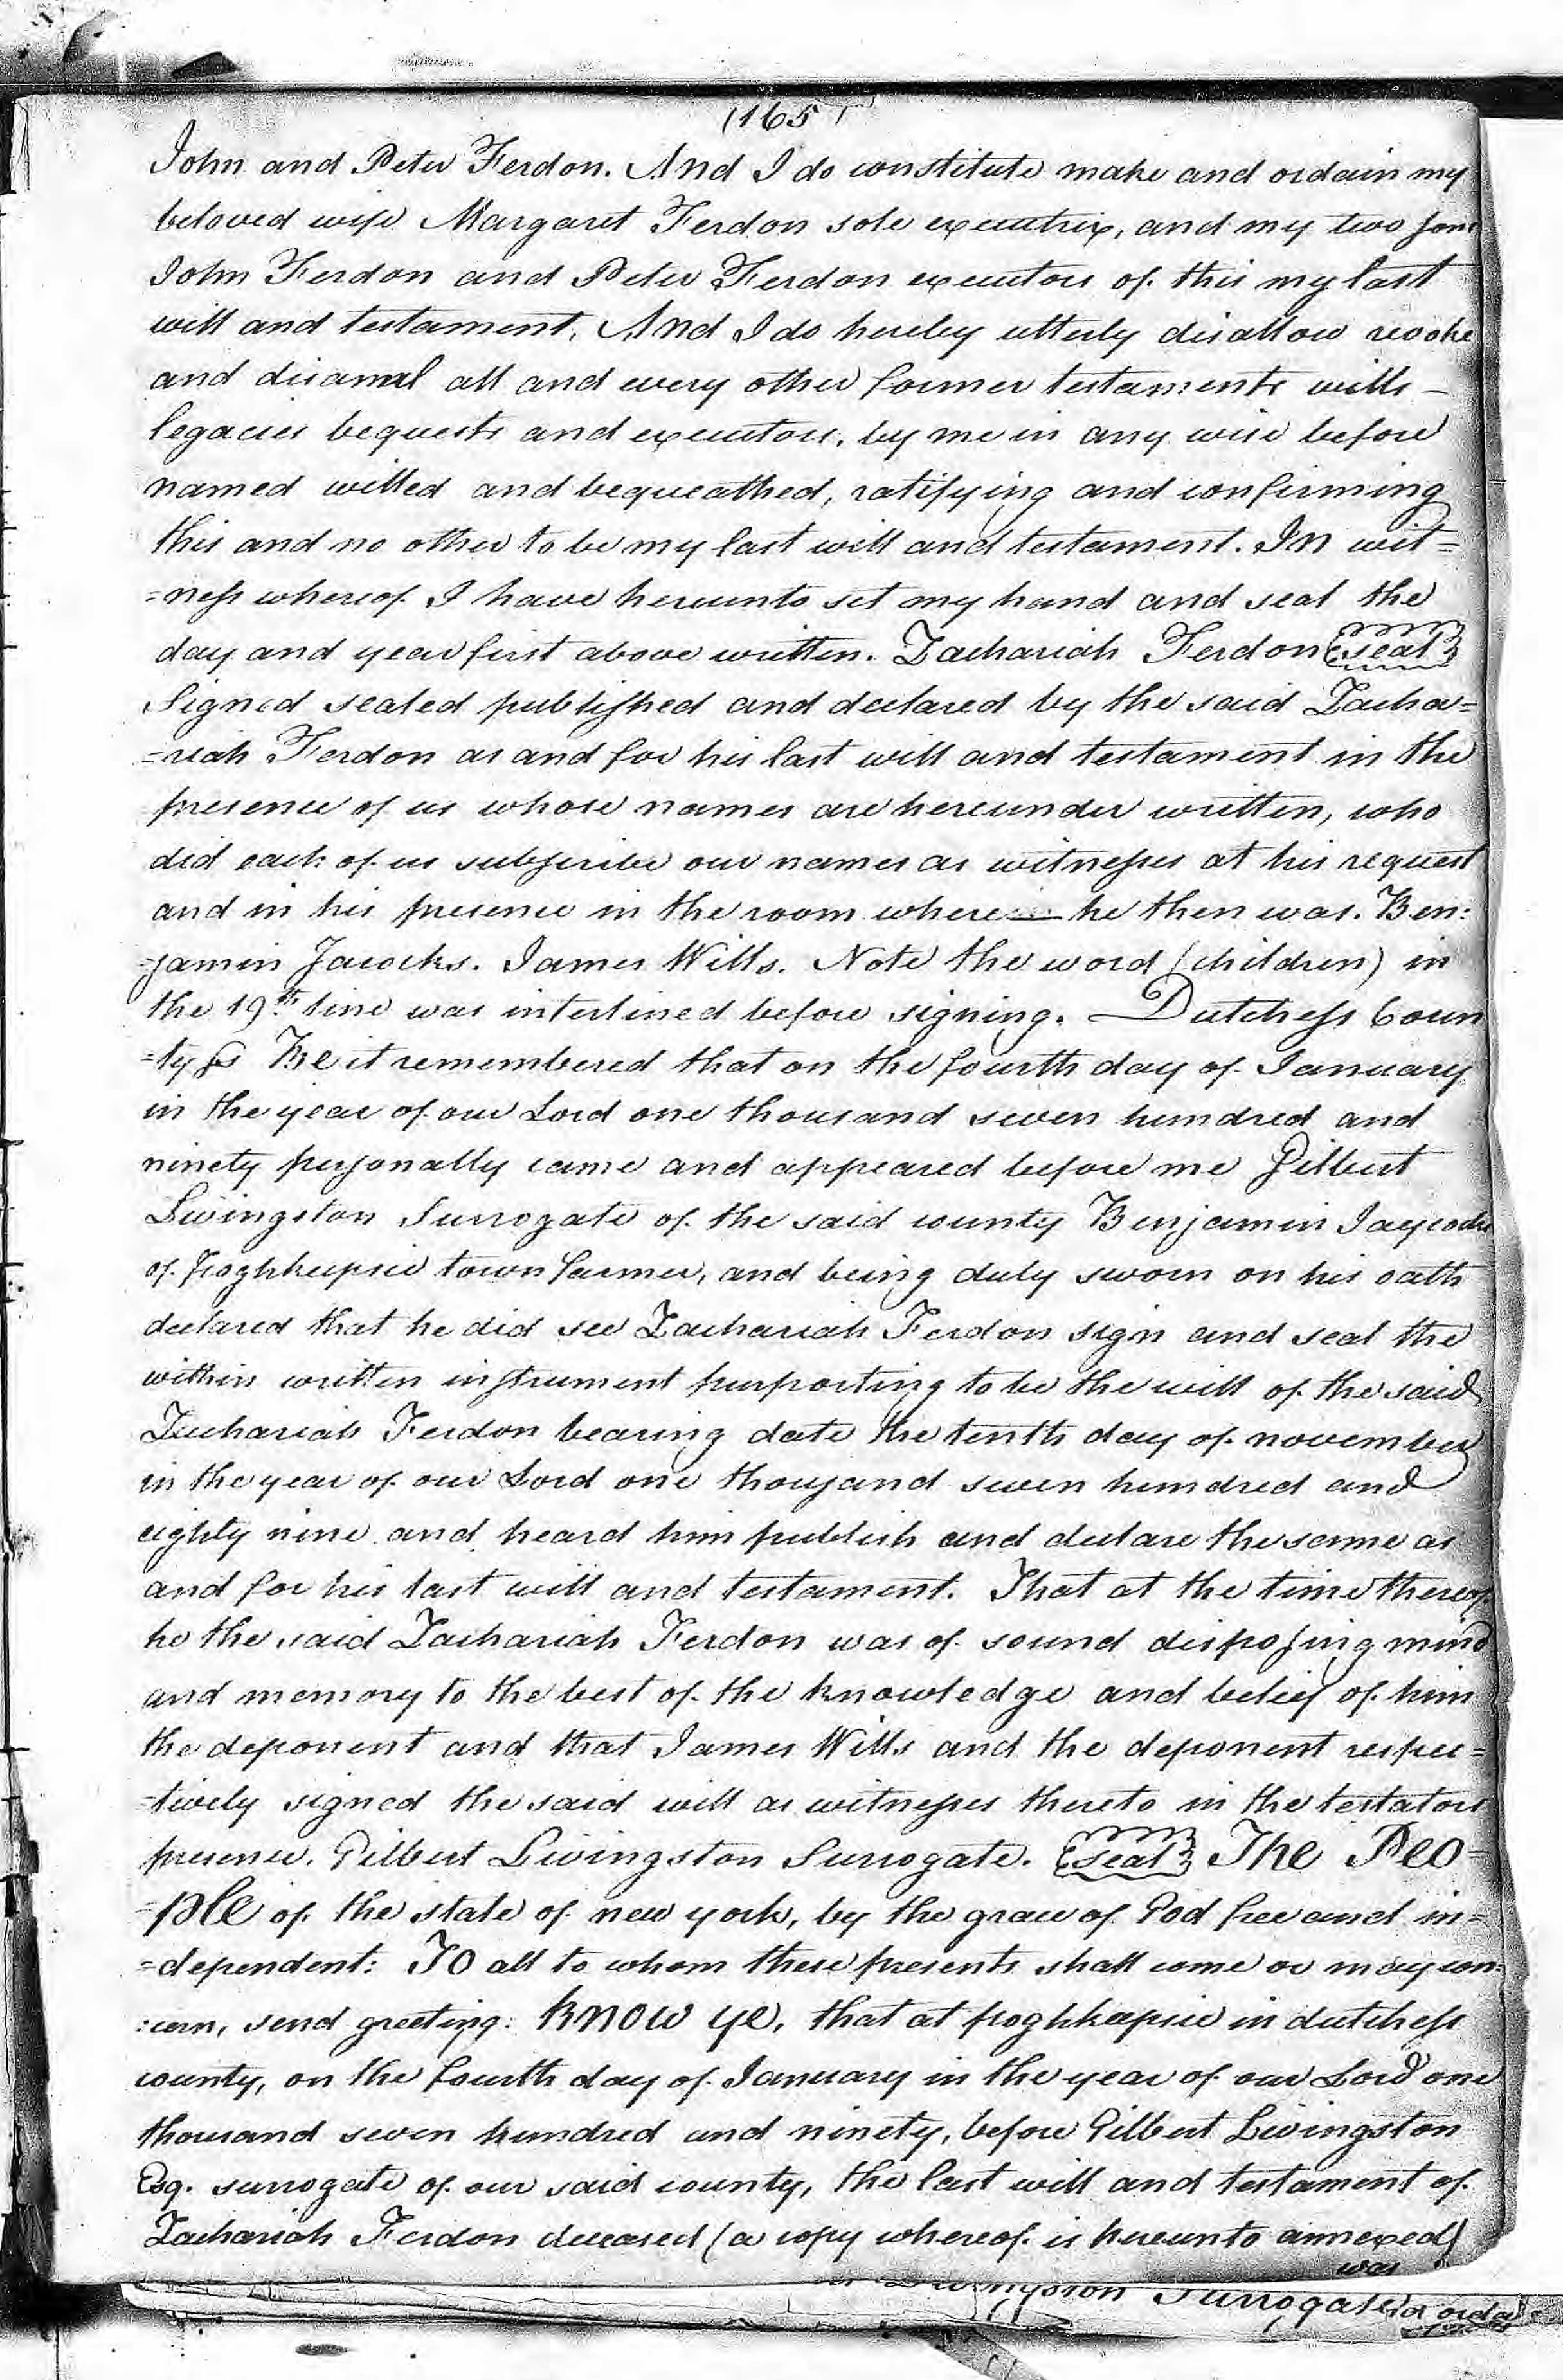 (165)
John and Peter Ferdon. And I do constitute make and ordain my
beloved wife Margaret Ferdon sole executrix, and my two sons
John Ferdon and Peter Ferdon executors of this my last
will and testament. And I do hereby utterly disallow revoke
and disannul all and every other former testaments wills —
legacies bequests and executors, by me in any wise before
named willed and bequeathed, ratifying and confirming
this and no other to be my last will and testament. In wit=
=ness whereof I have hereunto set my hand and seal the
day and year first above written. Zachariah Ferdon {seal}
Signed sealed published and declared by the said Zacha=
=riah Ferdon as and for his last will and testament in the
presence of us whose names are hereunder written, who
did each of us subscribe our names as witnesses at his request
and in his presence in the room where — he then was. Ben:
=jamin Jacocks. James Wills. Note the word (children) in
the 19th line was interlined before signing. — Dutchess Coun
=ty ss Be it remembered that on the fourth day of January
in the year of our Lord one thousand seven hundred and
ninety personally came and appeared before me Gilbert
Livingston Surrogate of the said county Benjamin Jaycocks
of poghkeepsie town farmer, and being duly sworn on his oath
declared that he did see Zachariah Ferdon sign and seal the
within written instrument purporting to be the will of the said
Zachariah Ferdon bearing date the tenth day of november
in the year of our Lord one thousand seven hundred and
eighty nine and heard him publish and declare the same as
and for his last will and testament. That at the time thereof
he the said Zachariah Ferdon was of sound disposing mind
and memory to the best of the knowledge and belief of him
the deponent and that James Wills and the deponent respec=
=tively signed the said will as witnesses thereto in the testators
presence. Gilbert Livingston Surrogate. {seal} The Peo=
=ple of the state of new york, by the grace of God free and in=
=dependent: To all to whom these presents shall come or may con:
:cern, send greeting: Know ye, that at poghkeepsie in dutchess
county, on the fourth day of January in the year of our Lord one
thousand seven hundred and ninety, before Gilbert Livingston
Esq. surrogate of our said county, the last will and testament of
Zachariah Ferdon deceased (a copy whereof is hereunto annexed)
was
Livingston Surrogate